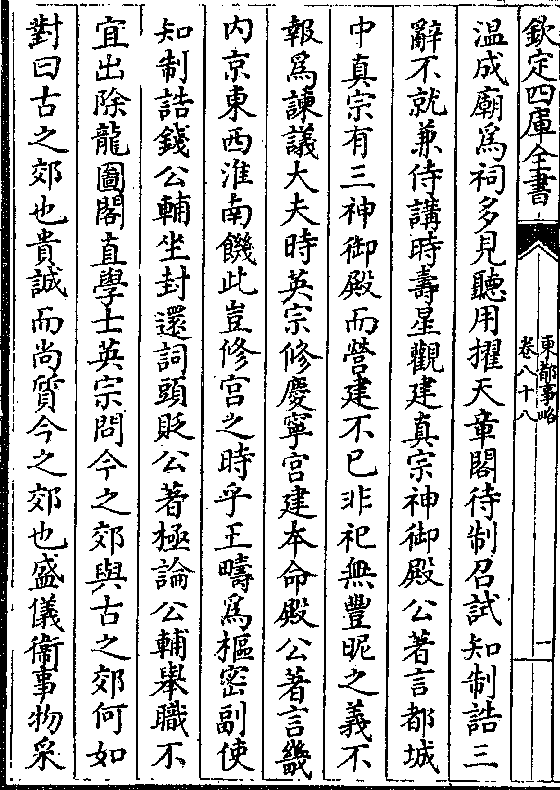 欽定四庫全書
東都事略
卷八十八
一
溫成廟為祠多見聽用擢天章閣待制召試知制誥三
辭不就兼侍講時壽星觀建真宗神御殿公著言都城
中真宗有三神御殿而營建不已非祀無豐昵之義不
報為諫議大夫時英宗修慶寧宮建本命殿公著言畿
内京東西淮南饑此豈修宮之時乎王疇為樞密副使
知制誥錢公輔坐封還詞頭貶公著極論公輔舉職不
宜出除龍圖閣直學士英宗問今之郊與古之郊何如
對曰古之郊也貴誠而尚質今之郊也盛儀衞事物采